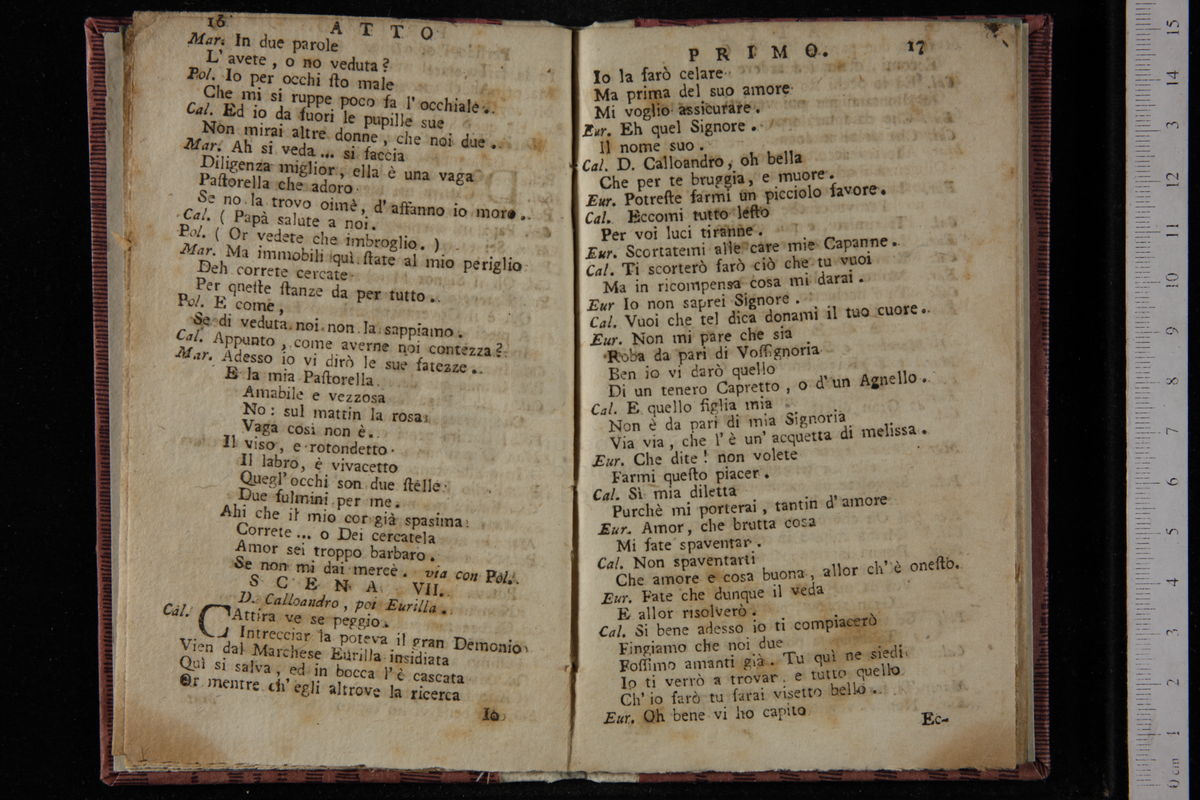 16 ATTO
Mar. In due parole
L' avete, o no veduta?
Pol. Io per occhi ſto male
Che mi si ruppe poco fa l' occhiale.
Cal. Ed io da fuori le pupille sue
Non mirai altre donne, che noi due.
Mar. Ah si veda... si faccia
Diligenza miglior, ella è una vaga
Paſtorella che adoro
Se no la trovo oimè, d' affanno io moro.
Cal. ( Papà salute a noi.
Pol. ( Or vedete che imbroglio. )
Mar. Ma immobili quì ſtate al mio periglio
Deh correte cercate
Per qneſte ſtanze da per tutto.
Pol. E come,
Se di veduta noi non la sappiamo.
Cal. Appunto, come averne noi contezza?
Mar. Adesso io vi dirò le sue fatezze.
E la mia Paſtorella
Amabile e vezzosa
No: sul mattin la rosa
Vaga così non è.
Il viso, e rotondetto
Il labro, è vivacetto
Quegl' occhi son due ſtelle
Due fulmini per me.
Ahi che il mio cor già spasima:
Correte... o Dei cercatela
Amor sei troppo barbaro.
Se non mi dai mercè. via con Pol.
SCENA VII.
D. Calloandro, poi Eurilla.
Cal. CAttira ve se peggio.
Intrecciar la poteva il gran Demonio
Vien dal Marchese Eurilla insidiata
Quì si salva, ed in bocca l' è cascata
Or mentre ch' egli altrove la ricerca
Io
PRIMO. 17
Io la farò celare
Ma prima del suo amore
Mi voglio assicurare.
Eur. Eh quel Signore.
Il nome suo.
Cal. D. Calloandro, oh bella
Che per te bruggia, e muore.
Eur. Potreſte farmi un picciolo favore.
Cal. Eccomi tutto leſto
Per voi luci tiranne.
Eur. Scortatemi alle care mie Capanne.
Cal. Ti scorterò farò ciò che tu vuoi
Ma in ricompensa cosa mi darai.
Eur Io non saprei Signore.
Cal. Vuoi che tel dica donami il tuo cuore.
Eur. Non mi pare che sia
Roba da pari di Voſſignoria
Ben io vi darò quello
Di un tenero Capretto, o d' un Agnello.
Cal. E quello figlia mia
Non è da pari di mia Signoria
Via via, che l' è un' acquetta di melissa.
Eur. Che dite! non volete
Farmi queſto piacer.
Cal. Sì mia diletta
Purchè mi porterai, tantin d' amore
Eur. Amor, che brutta cosa
Mi fate spaventar.
Cal. Non spaventarti
Che amore e cosa buona, allor ch' è oneſto.
Eur. Fate che dunque il veda
E allor risolverò.
Cal. Si bene adesso io ti compiacerò
Fingiamo che noi due
Foſſimo amanti già. Tu quì ne siedi
Io ti verrò a trovar, e tutto quello
Ch' io farò tu farai visetto bello.
Eur. Oh bene vi ho capito
Ec-
15
14
3
12
11
10
9
8
7
6
5
4
3
2
1
0 cm